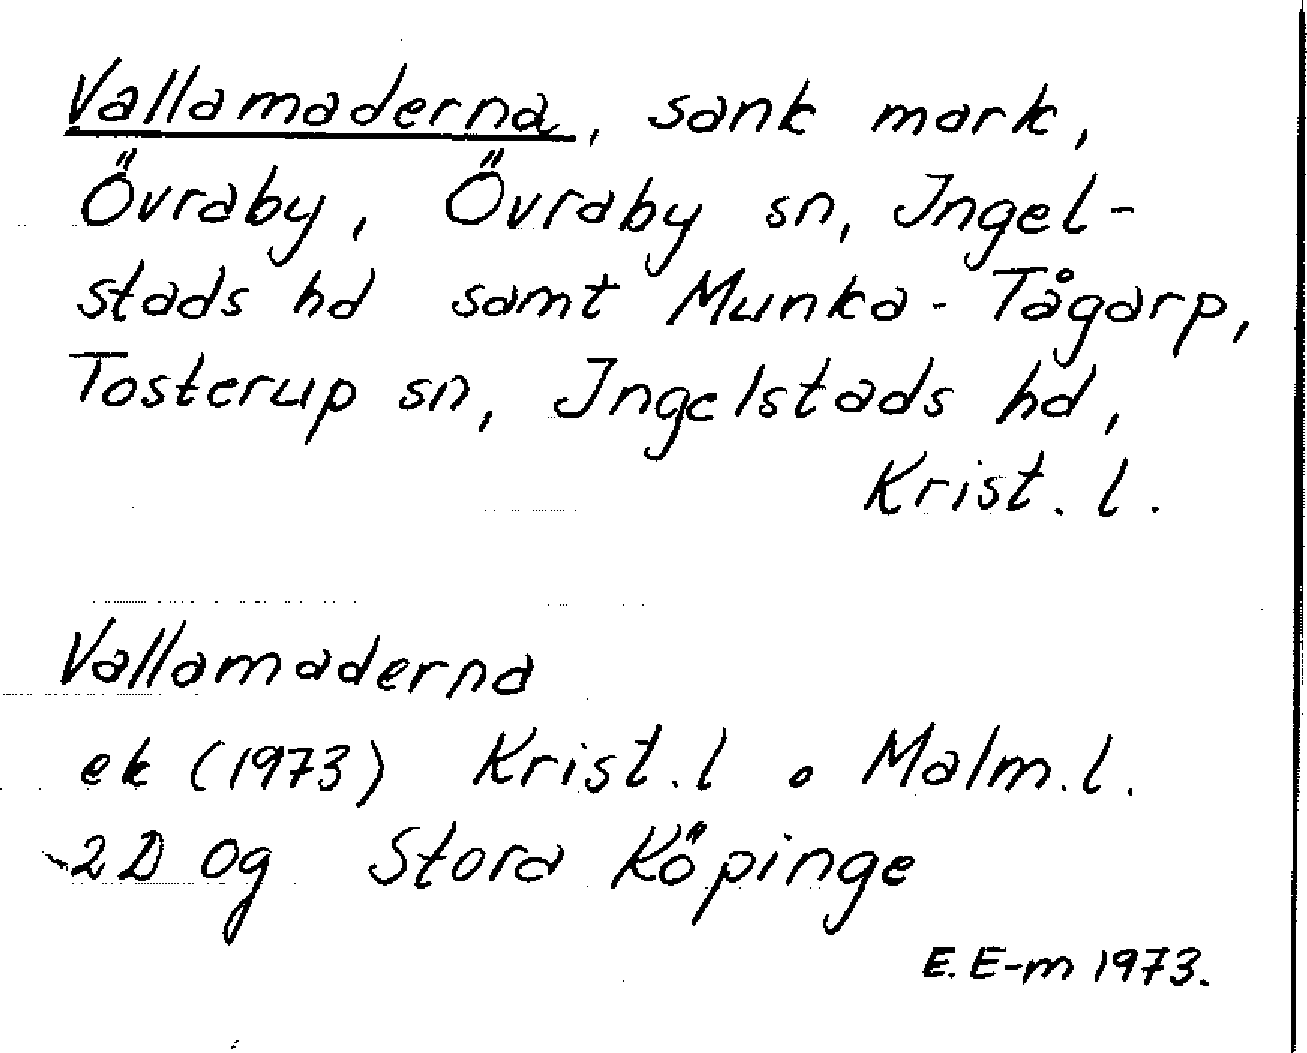 Vallamaderna, sank mark,
Övraby, Övraby sn, Ingel-
stads hd samt Munka-Tågarp,
Tosterup sn, Ingelstads hd,
Krist. l.
Vallamaderna
ek (1973) Krist. l o Malm. l.
2D Og Stora Köpinge
E. E-m 1973.